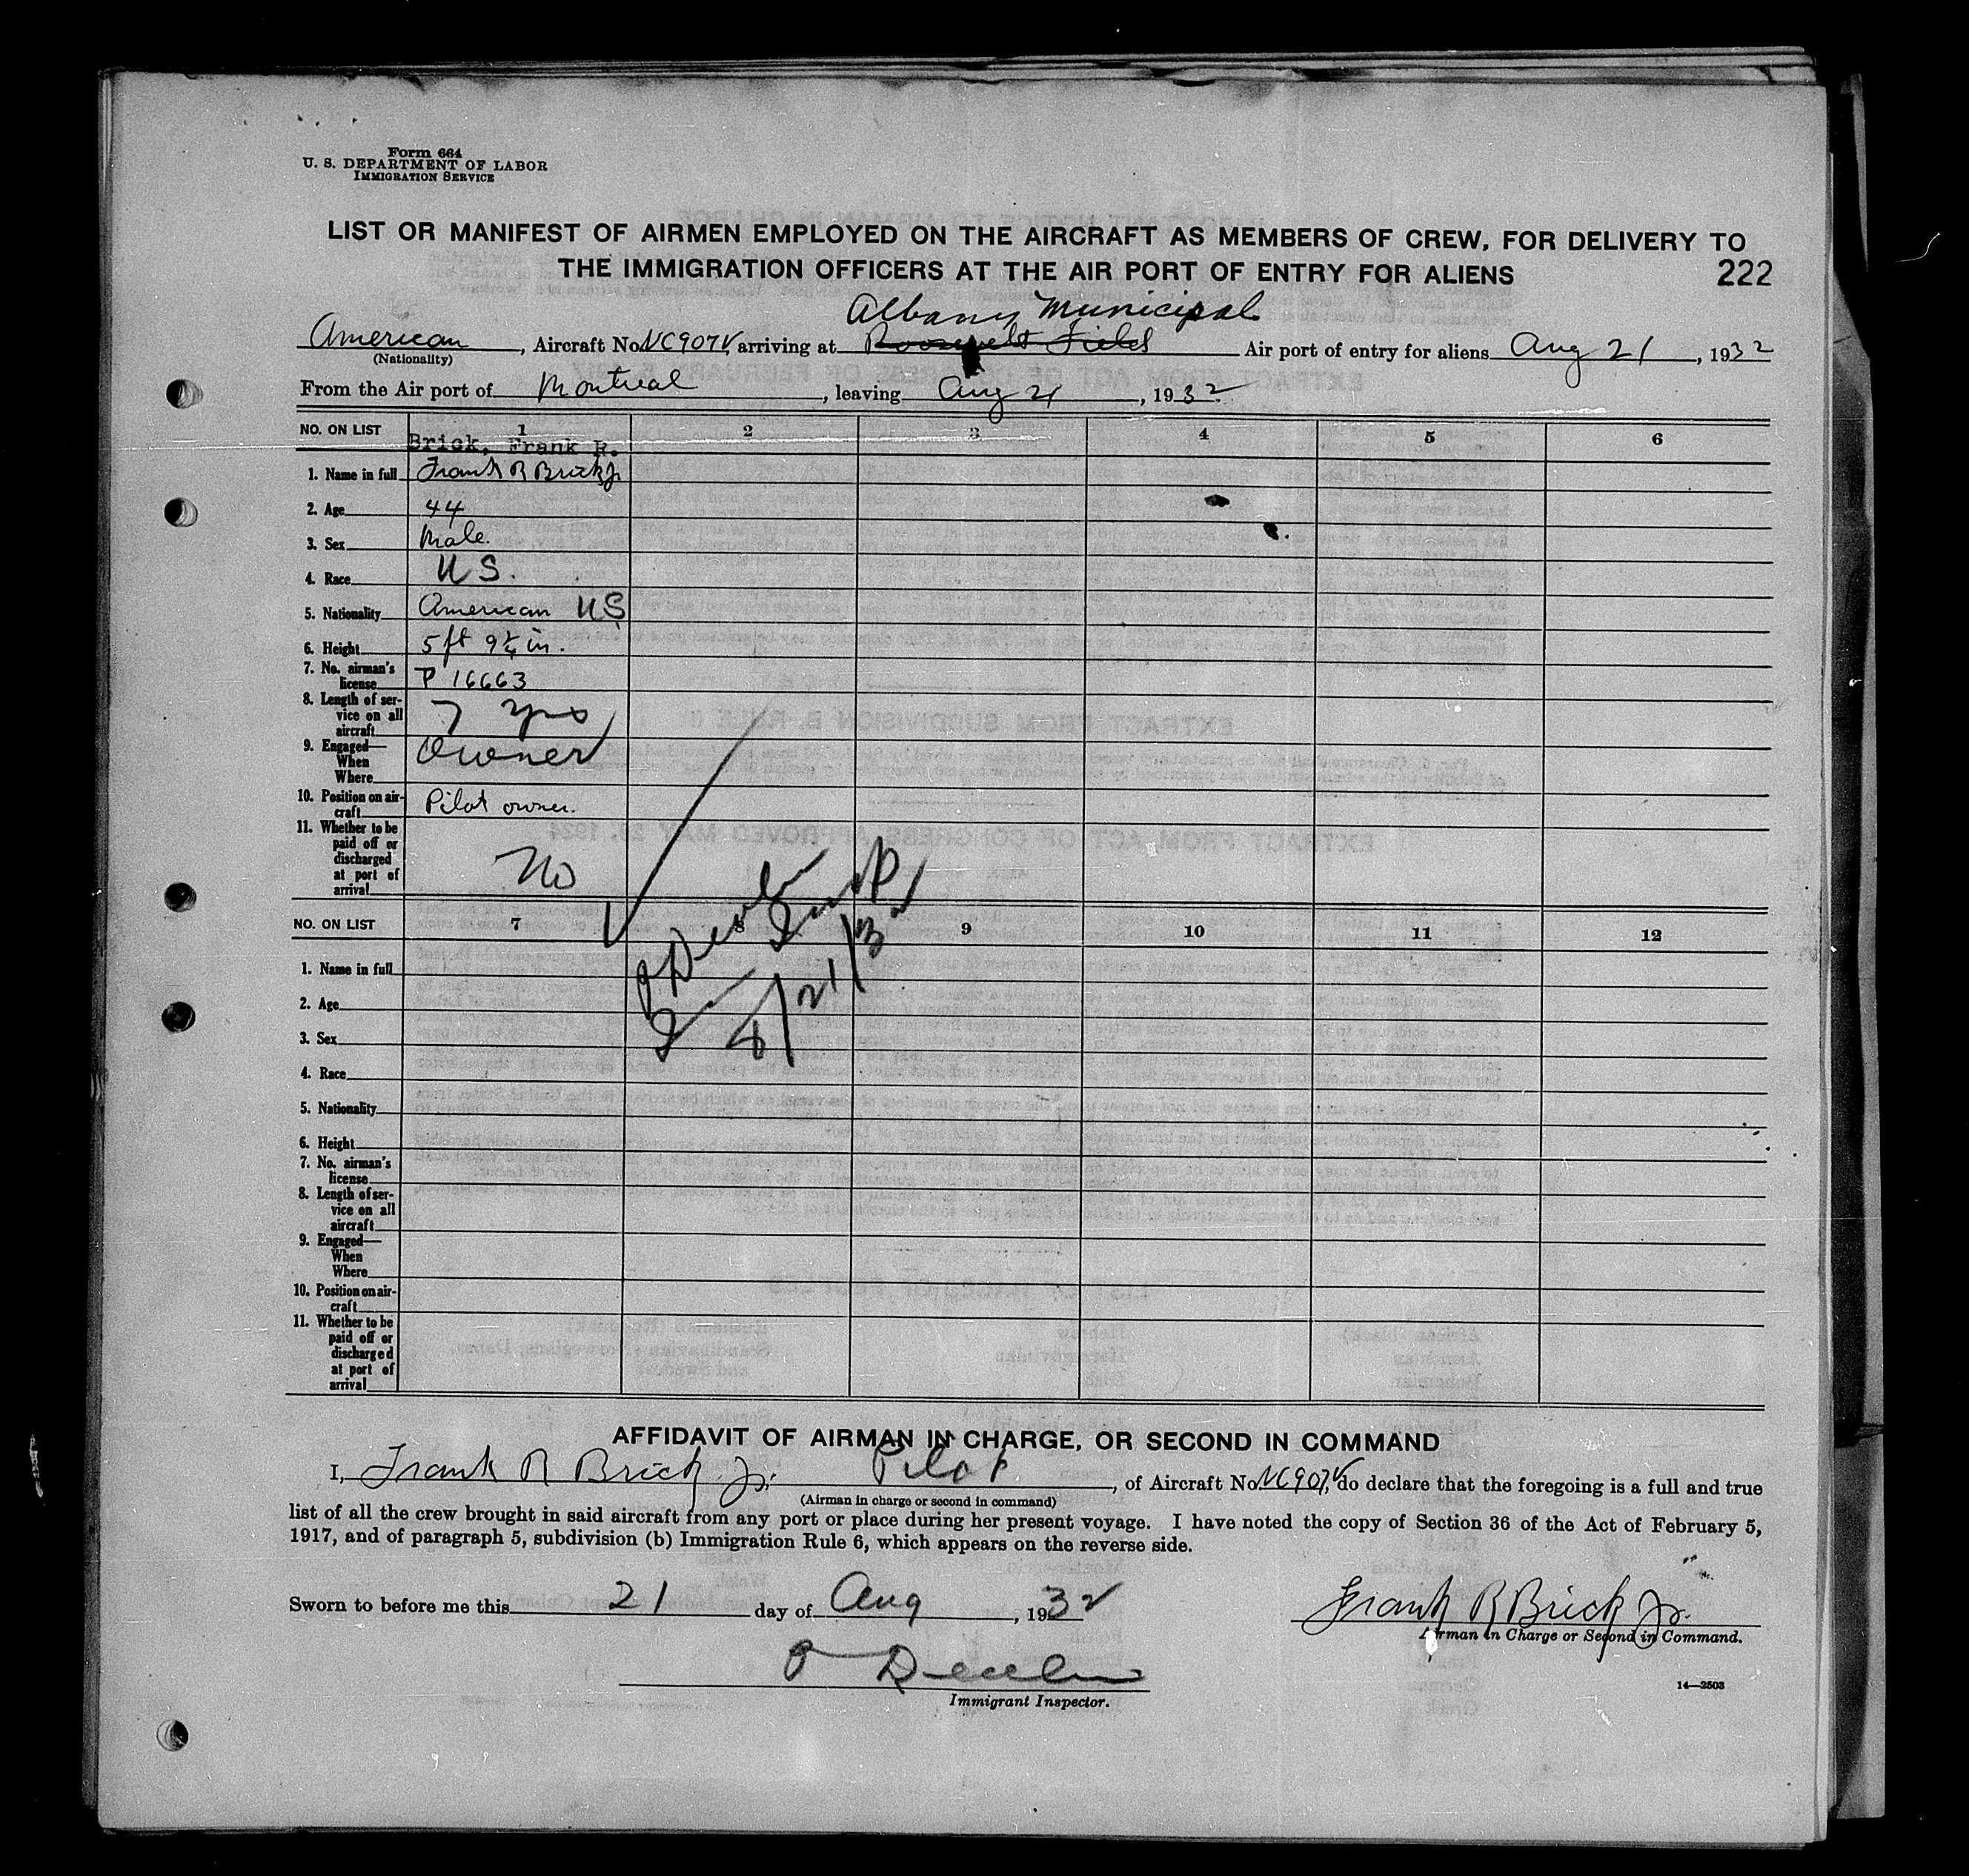 Form 664
U. S. DEPARTMENT OF LABOR
IMMIGRATION SERVICE
LIST OR MANIFEST OF AIRMEN EMPLOYED ON THE AIRCRAFT AS MEMBERS OF CREW, FOR DELIVERY TO
THE IMMIGRATION OFFICERS AT THE AIR PORT OF ENTRY FOR ALIENS
222
Albany Municipal
American, Aircraft No. NC907V, arriving at Roosevelt Field Air port of entry for aliens Aug 21, 1932
(Nationality)
From the Air port of Montreal, leaving Aug 21, 1932
NO. ON LIST 1 2 3 4 5 6
Brick, Frank R.
1. Name in full Frank R Brick Jr
2. Age 44
3. Sex Male.
4. Race U S.
5. Nationality American U S
6. Height 5 ft 9¼ in.
7. No. airman's license P 16663
8. Length of service on all aircraft 7 yrs
9. Engaged— When Where Owner
10. Position on aircraft Pilot owner.
11. Whether to be paid off or discharged at port of arrival No
8/21/32
NO. ON LIST 7 8 9 10 11 12
1. Name in full
2. Age
3. Sex
4. Race
5. Nationality
6. Height
7. No. airman's license
8. Length of service on all aircraft
9. Engaged— When Where
10. Position on aircraft
11. Whether to be paid off or discharged at port of arrival
AFFIDAVIT OF AIRMAN IN CHARGE, OR SECOND IN COMMAND
I, Frank R Brick Jr. Pilot, of Aircraft No. NC907V, do declare that the foregoing is a full and true
(Airman in charge or second in command)
list of all the crew brought in said aircraft from any port or place during her present voyage. I have noted the copy of Section 36 of the Act of February 5,
1917, and of paragraph 5, subdivision (b) Immigration Rule 6, which appears on the reverse side.
Sworn to before me this 21 day of Aug, 1932
Frank R Brick Jr.
Airman in Charge or Second in Command.
Immigrant Inspector.
14—2503